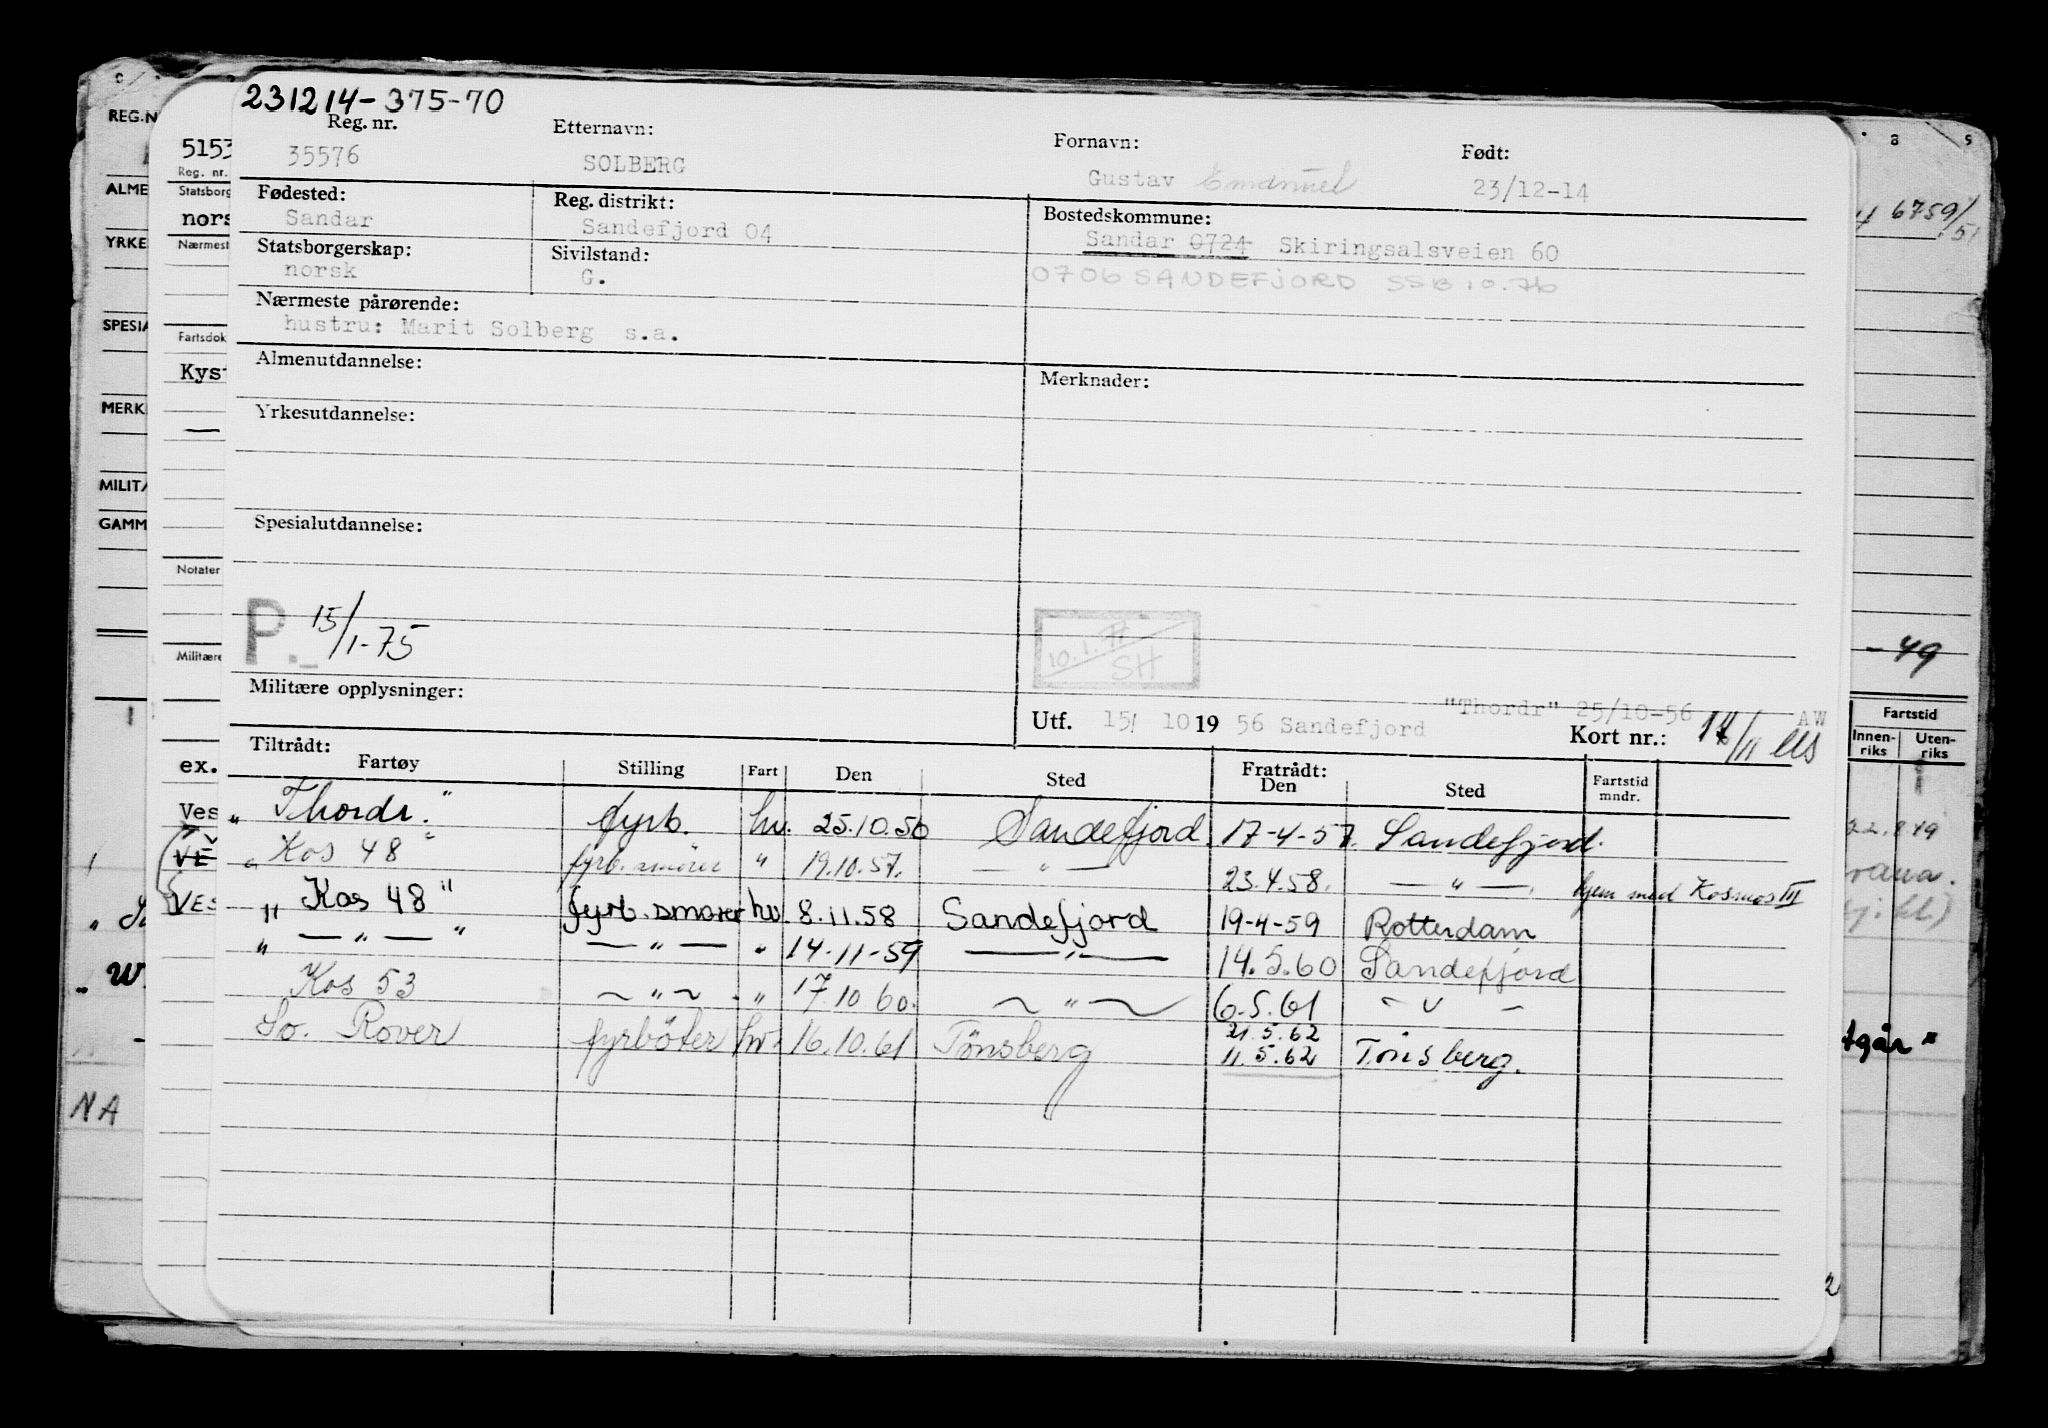 231214-375-70
Reg. nr. Etternavn: Fornavn: Født:
35576 SOLBERG Gustav Emanuel 23/12-14
Fødested: Reg. distrikt: Bostedskommune:
Sandar Sandefjord 04 Sandar 0724 Skiringsalsveien 60
Statsborgerskap: Sivilstand:
norsk G. 0706 SANDEFJORD SSB 10.76
Nærmeste pårørende:
hustru: Marit Solberg s.a.
Almenutdannelse: Merknader:
Yrkesutdannelse:
Spesialutdannelse:
P. 15/1-75
10.1.77
SH
Militære opplysninger:
"Thordr" 25/10-56 AW
Utf. 15/ 10 19 56 Sandefjord Kort nr.:
Tiltrådt: Fratrådt:
Fartøy Stilling Fart Den Sted Den Sted Fartstid mndr.
" Thordr. " fyrb. hv. 25.10.56 Sandefjord. 17-4-57. Sandefjord.
" Kos 48 " fyrb. smører " 19.10.57. — " — 23.4.58. — " —. hjem med Kosmos III
" Kos 48 " fyrb. smører hv. 8.11.58 Sandefjord 19-4-59 Rotterdam
" — " — " — " — " 14-11-59 — " — 14.5.60 Sandefjord
Kos 53 ~ " ~ " 17 10 60. ~ " ~ 6.5.61 - " -
So. Rover fyrböter hv. 16.10.61 Tønsberg 21.5.62
11.5.62 Tønsberg.
REG.N
ALME
YRKE
SPESIA
MERK
MILITÆ
GAMM
NA
5153
Reg. nr.
Statsborg
nors
Nærmest
Fartsdok
Kyst
—
Notater
Militære
ex.
Ves
VE
VES
W
8 9
6759/51
- 49
Fartstid
Innen-riks Uten-riks
tgår "
2